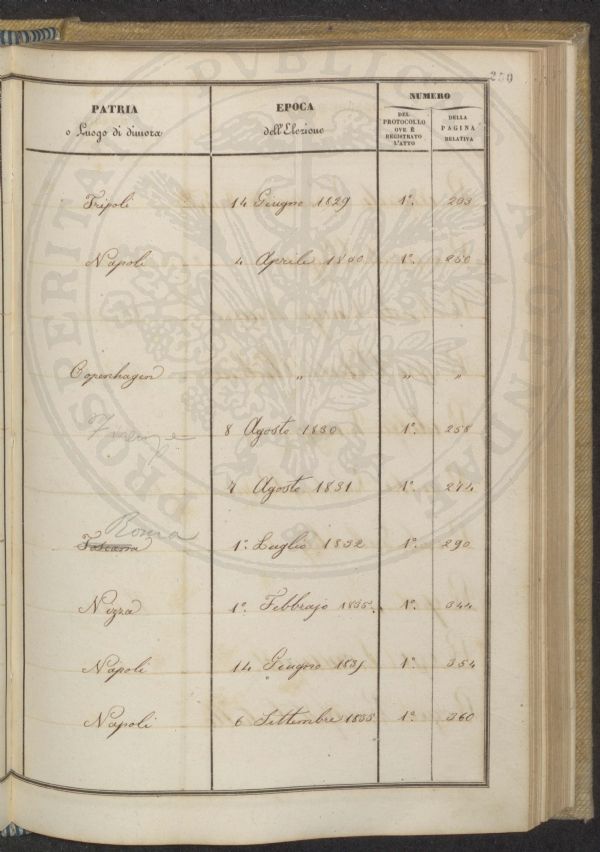 230
PATRIA
o Luogo di dimora
EPOCA
dell'Elezione
NUMERO
DEL
PROTOCOLLO
OVE È
REGISTRATO
L'ATTO
DELLA
PAGINA
RELATIVA
Tripoli 14 Giugno 1829 1º. 203
Napoli 4 Aprile 1830 1º. 250
Copenhagen " " "
Firenze 8 Agosto 1830 1º. 258
4 Agosto 1831 1º. 274
Roma
Toscana 1º. Luglio 1832 1º. 290
Nizza 1º. Febbrajo 1835. 1º. 344
Napoli 14 Giugno 1835 1º. 354
Napoli 6 Settembre 1835 1º. 360
PROSPERITATI PUBLICAE AUGENDAE